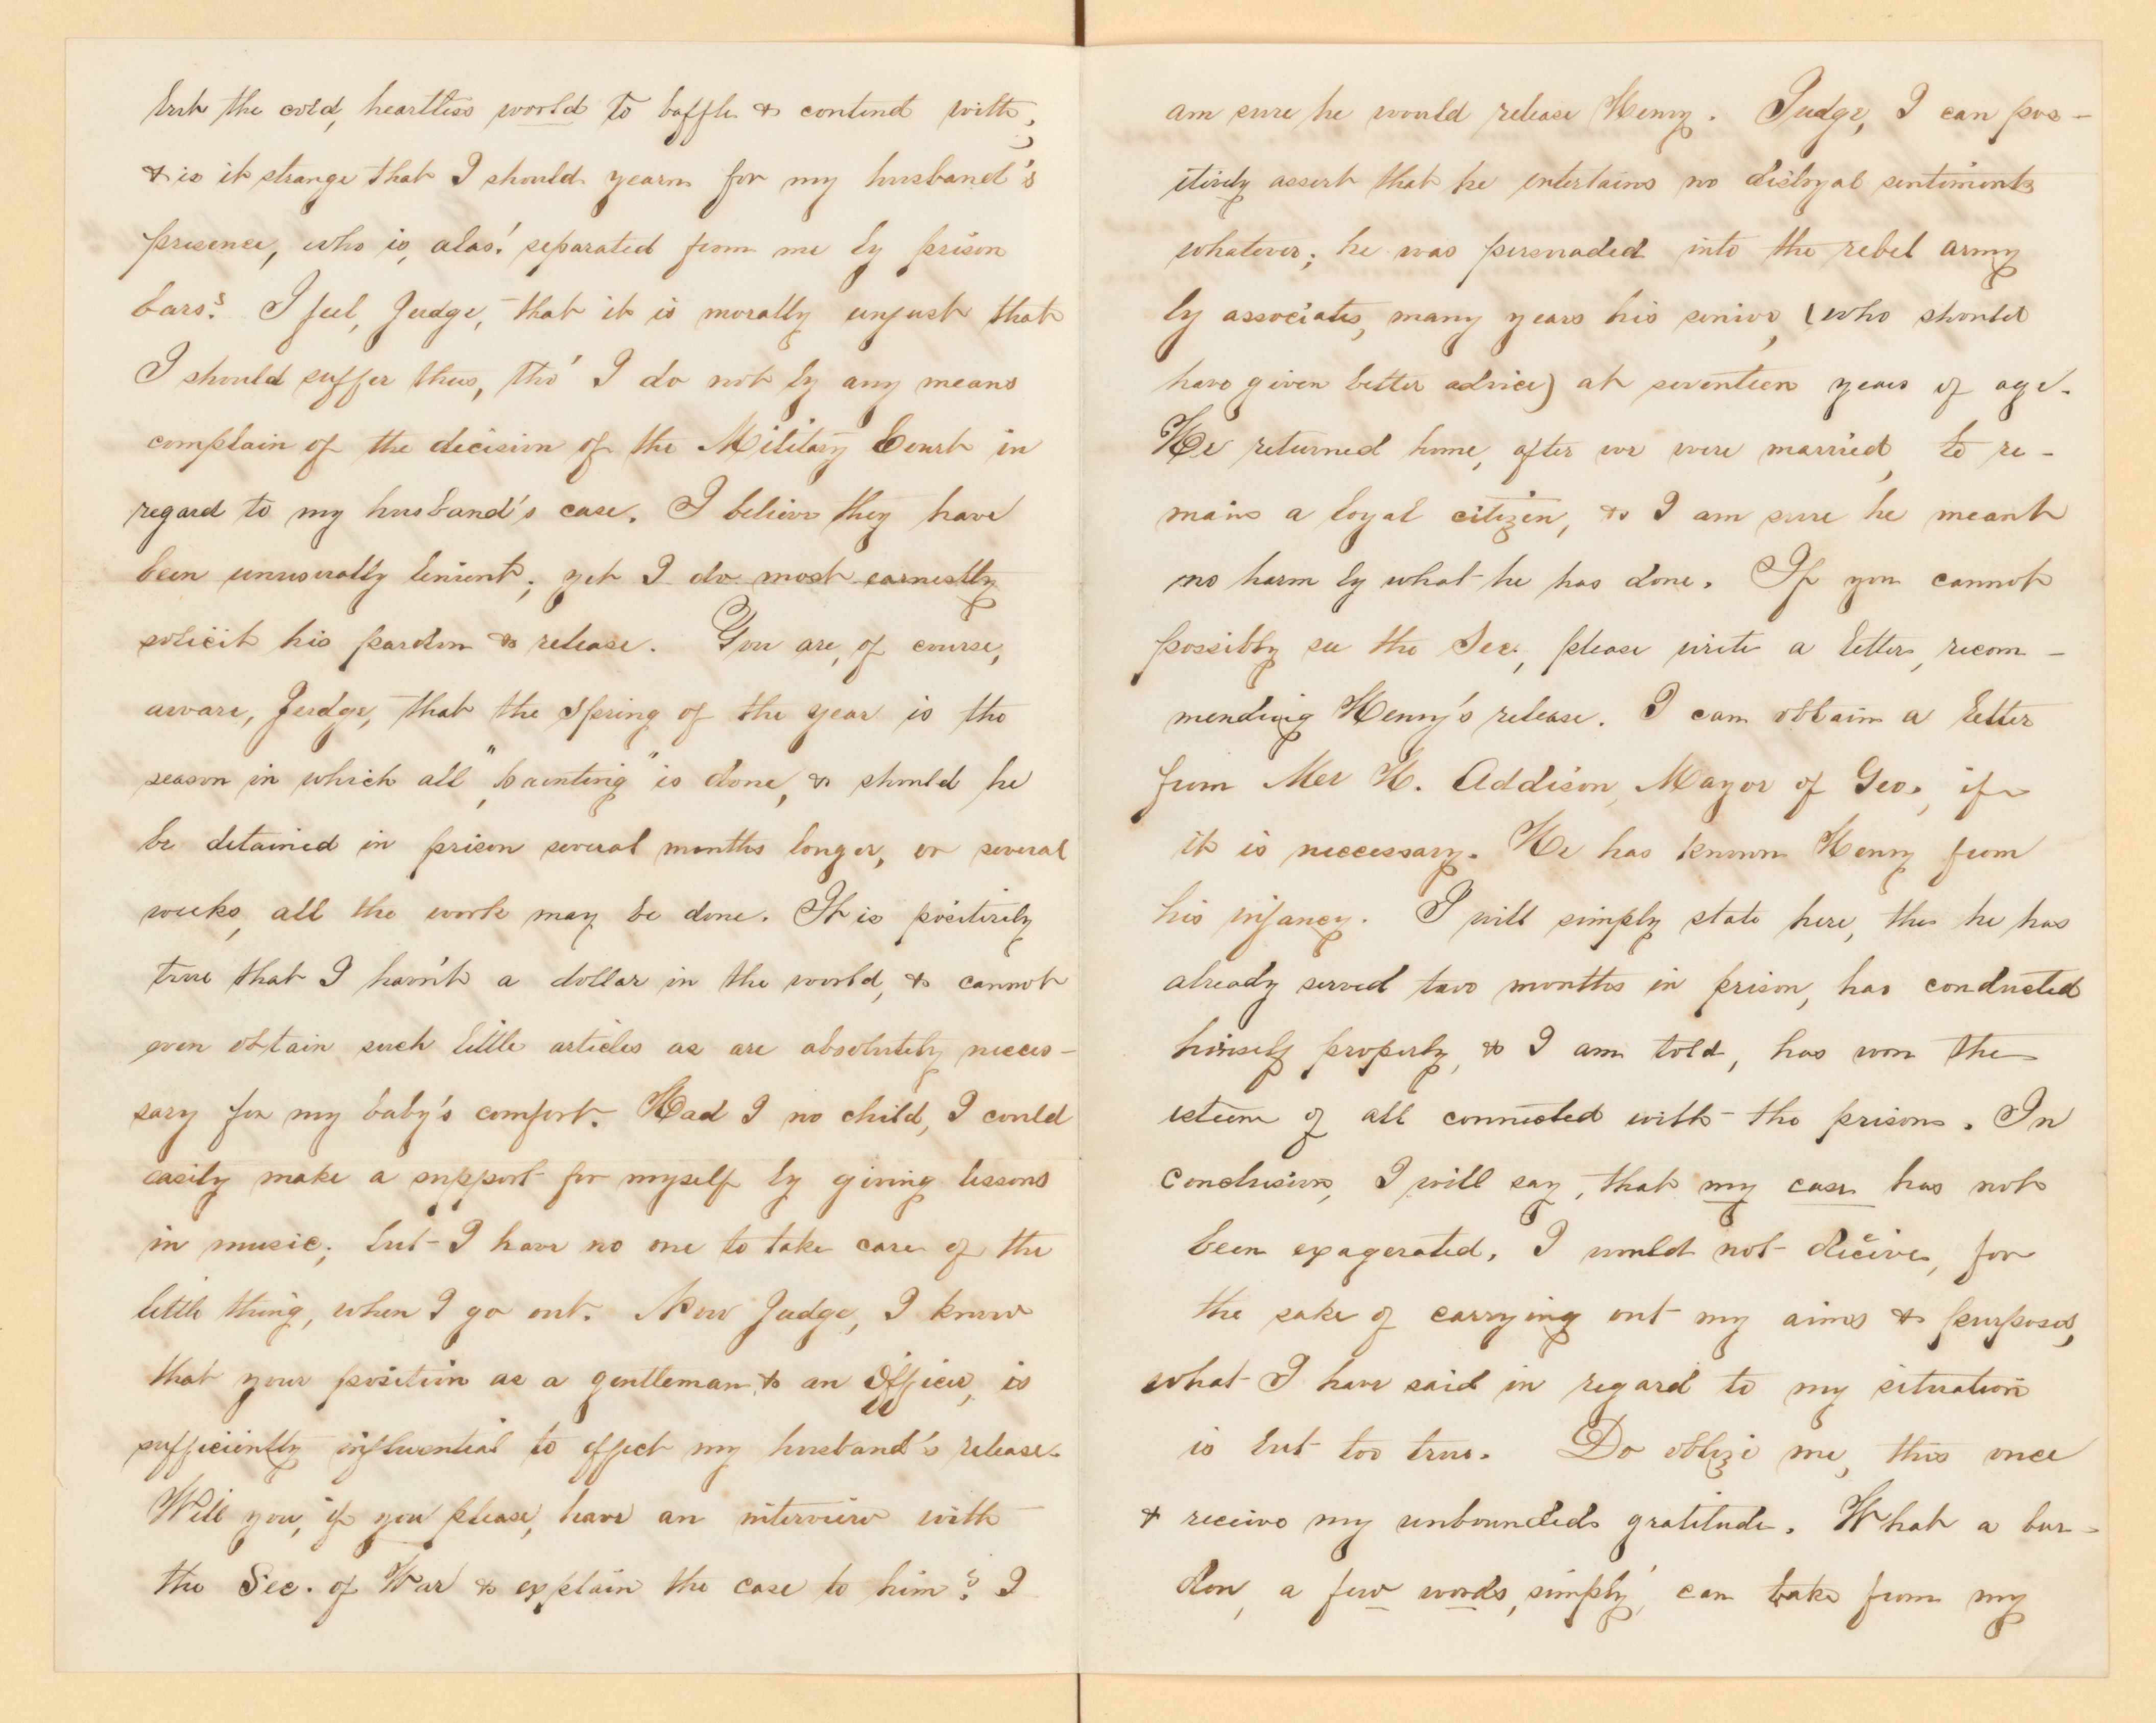 but the cold, heartless world to baffle & contend with;
& is it strange that I should yearn for my husband's
presence, who is, alas! separated from me by prison
bars? I feel, Judge, that it is morally unjust that
I should suffer thus, tho' I do not by any means
complain of the decision of the Military Court in
regard to my husband's case. I believe they have
been unusually lenient; yet I do most earnestly
solicit his pardon & release. You are, of course,
aware, Judge, that the Spring of the year is the
season in which all "painting" is done, & should he
be detained in prison several months longer, or several
weeks, all the work may be done. It is positively
true that I hav'nt a dollar in the world, & cannot
even obtain such little articles as are absolutely neces-
sary for my baby's comfort. Had I no child, I could
easily make a support for myself by giving lessons
in music; but I have no one to take care of the
little thing, when I go out. Now Judge, I know
that your position as a gentleman & an Officer, is
sufficiently influential to effect my husband's release.
Will you, if you please, have an interview with
the Sec. of War & explain the case to him? I
am sure he would release Henry. Judge, I can pos-
itively assert that he entertains no disloyal sentiments
whatever; he was persuaded into the rebel army
by associates, many years his senior, (who should
have given better advice) at seventeen years of age.
He returned home, after we were married, to re-
main a loyal citizen, & I am sure he meant
no harm by what he has done. If you cannot
possibly see the Sec., please write a letter, recom-
mending Henry's release. I can obtain a letter
from Mr H. Addison, Mayor of Geo., if
it is neccessary. He has known Henry from
his infancy. I will simply state here, tho he has
already served two months in prison, has conducted
himself properly, & I am told, has won the
esteem of all connected with the prison. In
conclusion, I will say, that my case has not
been exagerated. I would not decive, for
the sake of carrying out my aims & purposes,
what I have said in regard to my situation
is but too true. Do oblige me, this once
& receive my unbounded gratitude. What a bur-
den, a few words, simply, can take from my